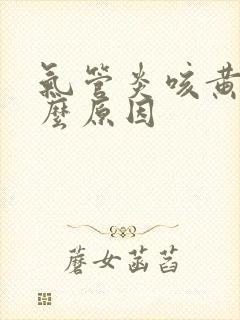 氣管炎咳黃
麼原因
蘑女菡萏